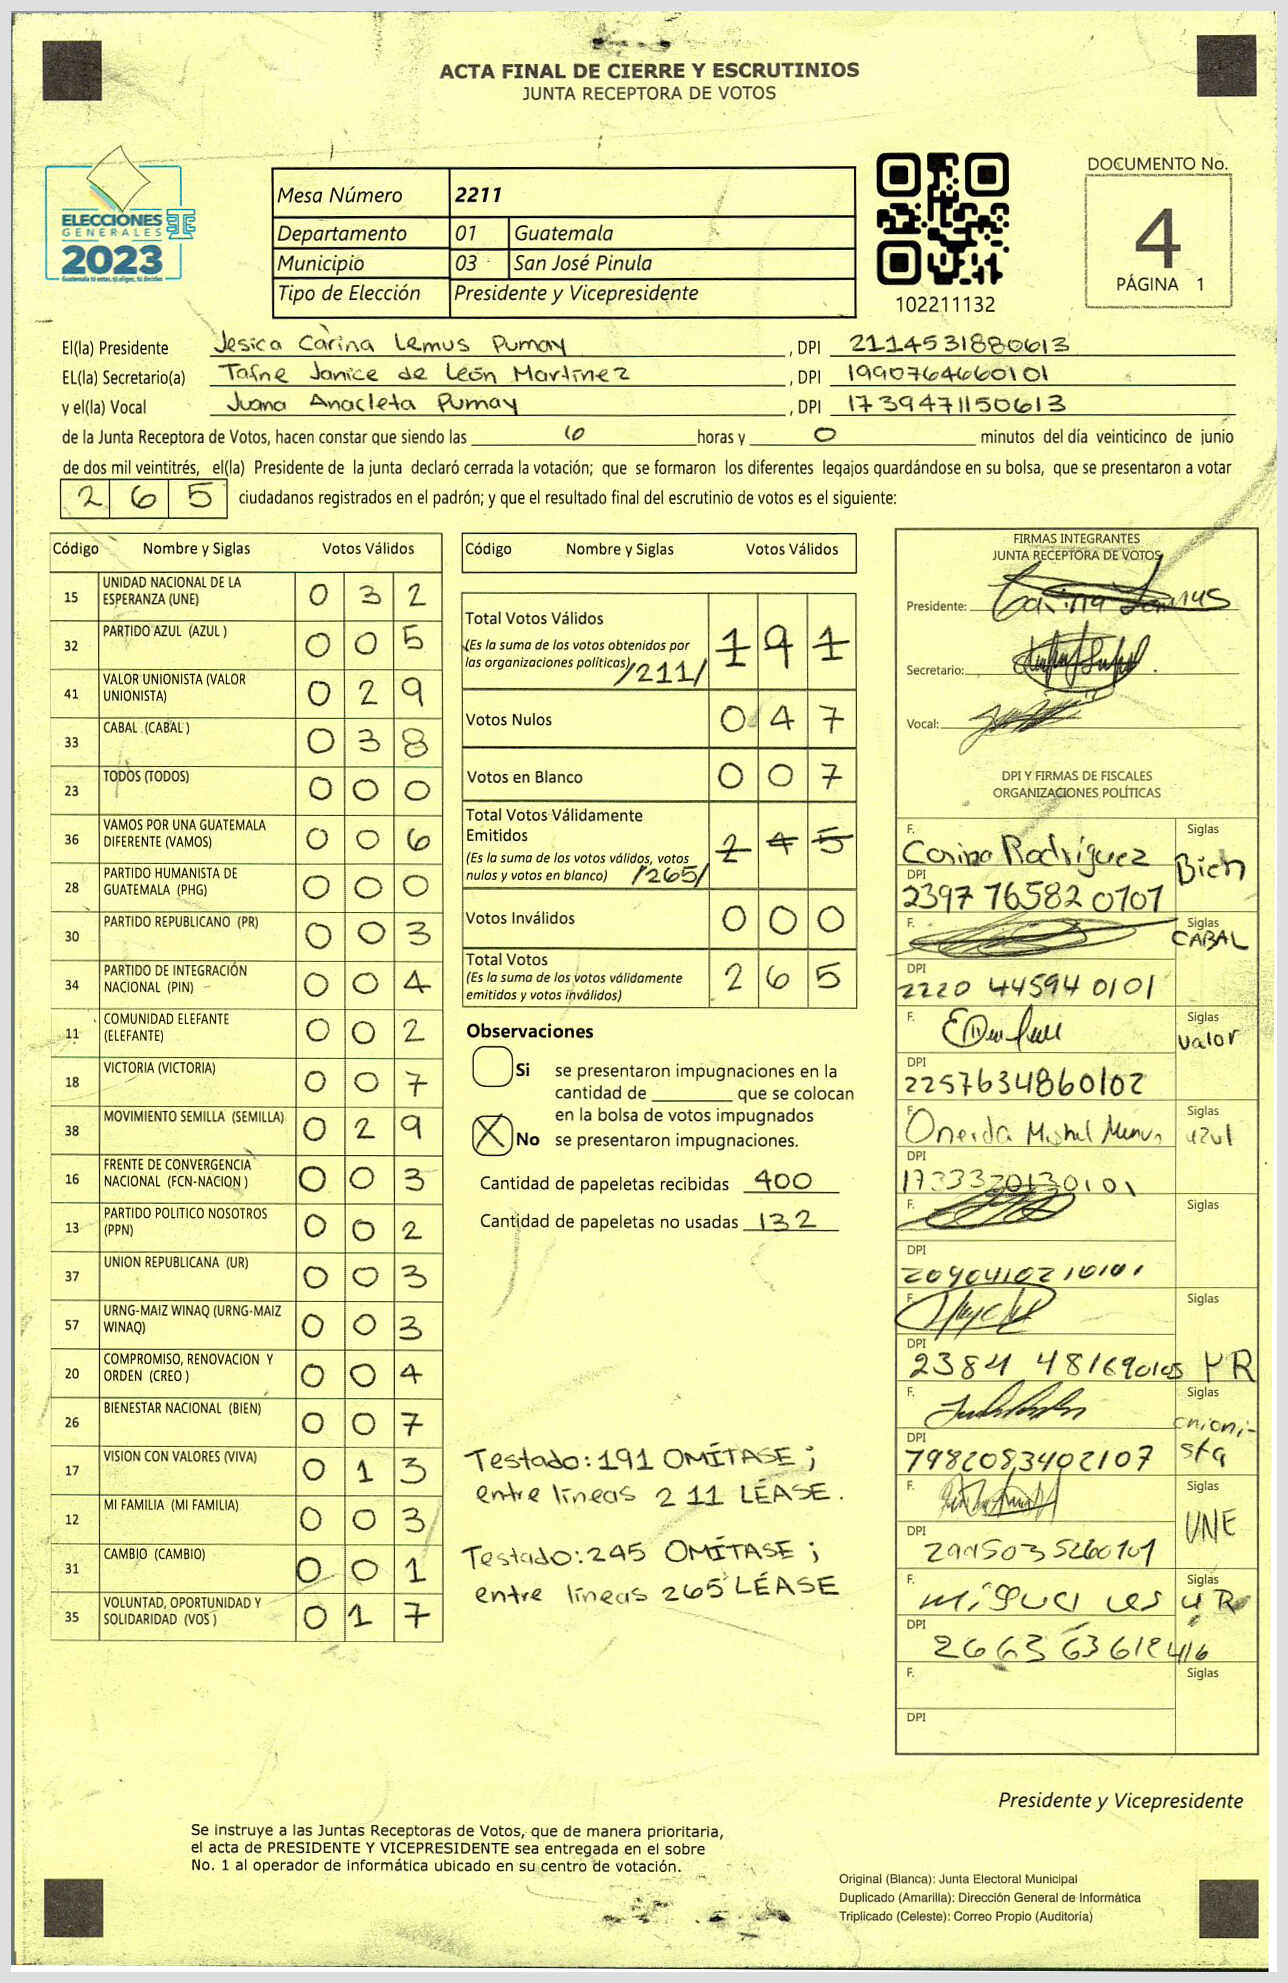 ACTA FINAL DE CIERRE Y ESCRUTINIOS
JUNTA RECEPTORA DE VOTOS
ELECCIONES
GENERALES
2023
Mesa Número 2211
Departamento 01 Guatemala
Municipio 03 San José Pinula
Tipo de Elección Presidente y Vicepresidente
102211132
DOCUMENTO No.
4
PÁGINA 1
El(la) Presidente Jesica Carina Lemus Pumay, DPI 2114531880613
EL(la) Secretario(a) Tafne Janice de León Martínez, DPI 1990764660101
y el(la) Vocal Juana Anacleta Pumay, DPI 1739471150613
de la Junta Receptora de Votos, hacen constar que siendo las 6 horas y 0 minutos del día veinticinco de junio
de dos mil veintitrés, el(la) Presidente de la junta declaró cerrada la votación; que se formaron los diferentes legajos guardándose en su bolsa, que se presentaron a votar
2 6 5 ciudadanos registrados en el padrón; y que el resultado final del escrutinio de votos es el siguiente:
Código Nombre y Siglas Votos Válidos
15 UNIDAD NACIONAL DE LA ESPERANZA (UNE) 0 3 2
32 PARTIDO AZUL (AZUL ) 0 0 5
41 VALOR UNIONISTA (VALOR UNIONISTA) 0 2 9
33 CABAL (CABAL ) 0 3 8
23 TODOS (TODOS) 0 0 0
36 VAMOS POR UNA GUATEMALA DIFERENTE (VAMOS) 0 0 6
28 PARTIDO HUMANISTA DE GUATEMALA (PHG) 0 0 0
30 PARTIDO REPUBLICANO (PR) 0 0 3
34 PARTIDO DE INTEGRACIÓN NACIONAL (PIN) 0 0 4
11 COMUNIDAD ELEFANTE (ELEFANTE) 0 0 2
18 VICTORIA (VICTORIA) 0 0 7
38 MOVIMIENTO SEMILLA (SEMILLA) 0 2 9
16 FRENTE DE CONVERGENCIA NACIONAL (FCN-NACION ) 0 0 3
13 PARTIDO POLITICO NOSOTROS (PPN) 0 0 2
37 UNION REPUBLICANA (UR) 0 0 3
57 URNG-MAIZ WINAQ (URNG-MAIZ WINAQ) 0 0 3
20 COMPROMISO, RENOVACION Y ORDEN (CREO ) 0 0 4
26 BIENESTAR NACIONAL (BIEN) 0 0 7
17 VISION CON VALORES (VIVA) 0 1 3
12 MI FAMILIA (MI FAMILIA) 0 0 3
31 CAMBIO (CAMBIO) 0 0 1
35 VOLUNTAD, OPORTUNIDAD Y SOLIDARIDAD (VOS ) 0 1 7
Código Nombre y Siglas Votos Válidos
Total Votos Válidos 1 9 1
(Es la suma de los votos obtenidos por
las organizaciones políticas) /211/
Votos Nulos 0 4 7
Votos en Blanco 0 0 7
Total Votos Válidamente
Emitidos 2 4 5
(Es la suma de los votos válidos, votos
nulos y votos en blanco) /265/
Votos Inválidos 0 0 0
Total Votos 2 6 5
(Es la suma de los votos válidamente
emitidos y votos inválidos)
Observaciones
Si se presentaron impugnaciones en la
cantidad de ________ que se colocan
en la bolsa de votos impugnados
X No se presentaron impugnaciones.
Cantidad de papeletas recibidas 400
Cantidad de papeletas no usadas 132
Testado: 191 OMÍTASE ;
entre líneas 2 11 LÉASE.
Testado: 245 OMÍTASE ;
entre líneas 265 LÉASE
FIRMAS INTEGRANTES
JUNTA RECEPTORA DE VOTOS
Presidente:
Secretario:
Vocal:
DPI Y FIRMAS DE FISCALES
ORGANIZACIONES POLÍTICAS
F. Rodríguez Siglas Bien
DPI 2397 76582 0101
F. Siglas CABAL
DPI 2220 44594 0101
F. Siglas valor
DPI 2257634860102
F. Oneida Siglas azul
DPI 1733320130101
F. Siglas
DPI 2090410210101
F. Siglas
DPI 2384 481690105 UR
F. Siglas unioni-
sta
DPI 7982083402107
F. Siglas UNE
DPI 2995035260101
F. Siglas UR
DPI
F. Siglas
DPI
Presidente y Vicepresidente
Se instruye a las Juntas Receptoras de Votos, que de manera prioritaria,
el acta de PRESIDENTE Y VICEPRESIDENTE sea entregada en el sobre
No. 1 al operador de informática ubicado en su centro de votación.
Original (Blanca): Junta Electoral Municipal
Duplicado (Amarilla): Dirección General de Informática
Triplicado (Celeste): Correo Propio (Auditoría)